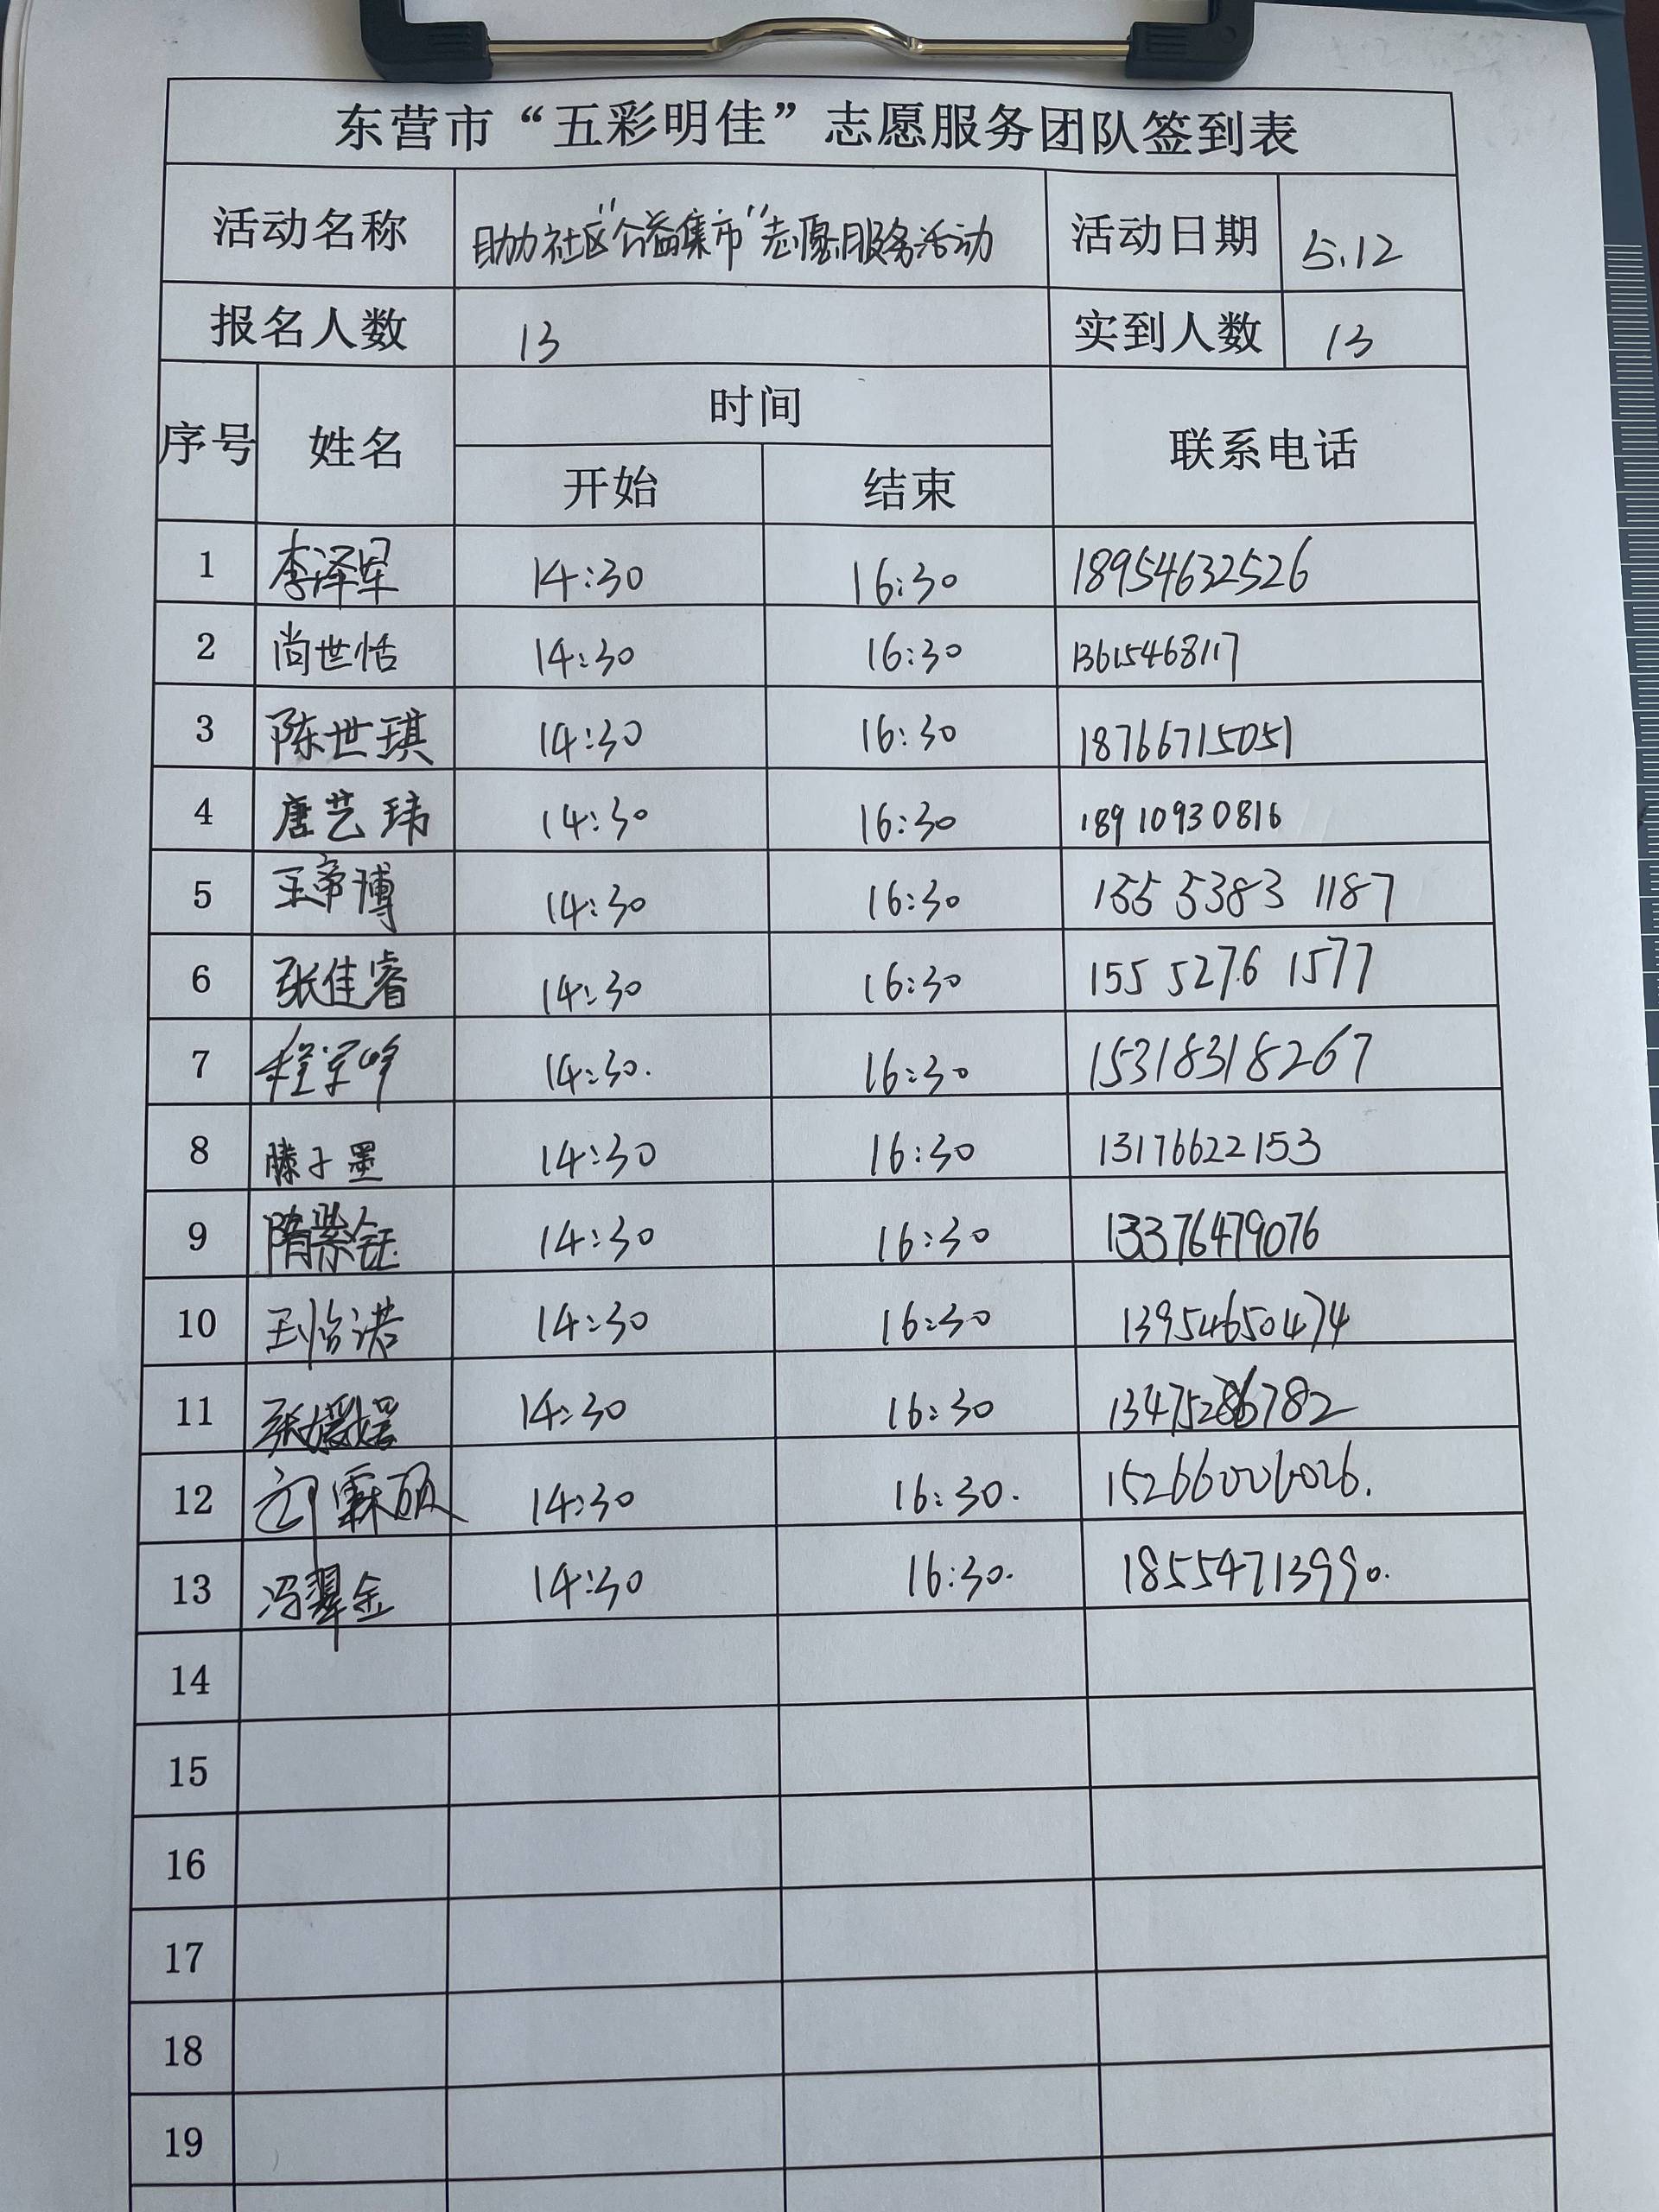 东营市“五彩明佳”志愿服务团队签到表
活动名称 助力社区“公益集市”志愿服务活动 活动日期 5.12
报名人数 13 实到人数 13
序号 姓名 时间 联系电话
开始 结束
1 李泽军 14:30 16:30 18954632526
2 尚世恬 14:30 16:30 13615468117
3 陈世琪 14:30 16:30 18766715051
4 唐艺玮 14:30 16:30 18910930816
5 王帝博 14:30 16:30 155 5383 1187
6 张佳睿 14:30 16:30 155 5276 1577
7 14:30. 16:30 15318318267
8 滕子墨 14:30 16:30 13176622153
9 隋紫钰 14:30 16:30 13376479076
10 王怡诺 14:30 16:30 13954650474
11 14:30 16:30
12 14:30 16:30. 15266006026.
13 冯翠金 14:30 16:30. 18554713990.
14
15
16
17
18
19